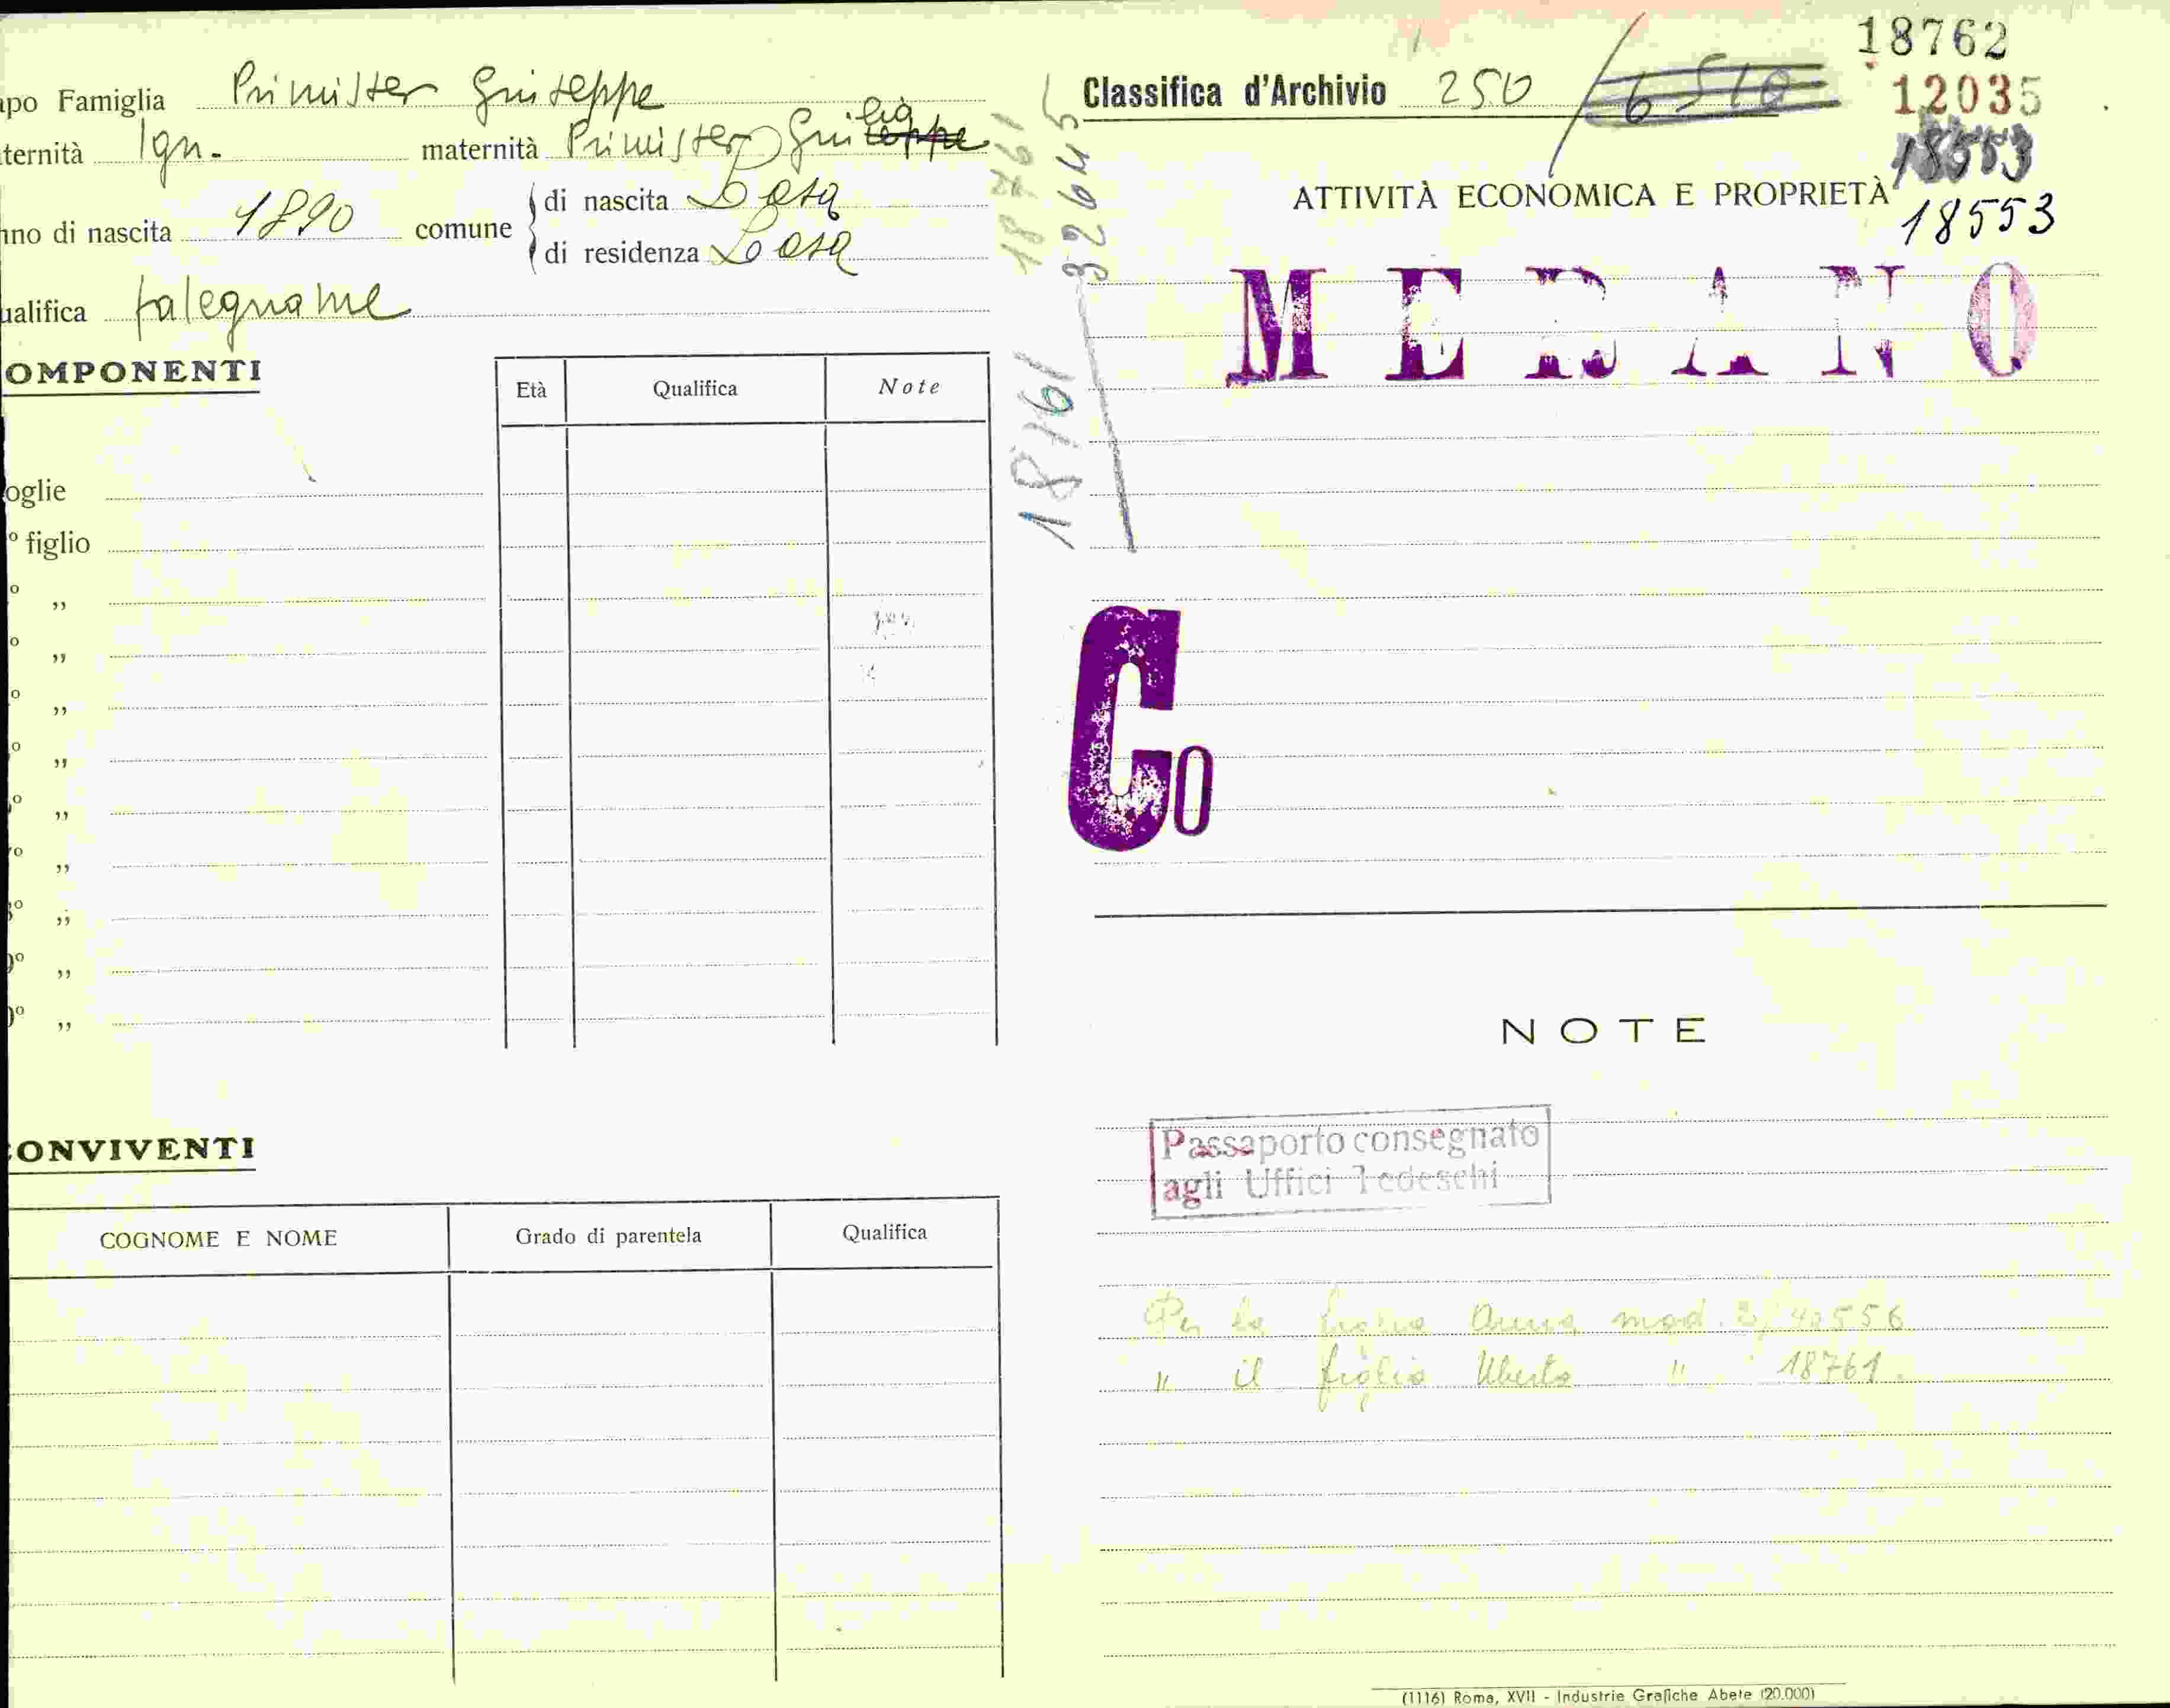 apo Famiglia Primister Giuseppe
ternità Ign. maternità Primister Giulia
nno di nascita 1890 comune di nascita Lasa
di residenza Lasa
ualifica falegname
OMPONENTI
Età Qualifica Note
oglie
º figlio
º „
º „
º „
º „
º „
º „
º „
º „
º „
ONVIVENTI
COGNOME E NOME Grado di parentela Qualifica
18761
32645
18761
Classifica d'Archivio 250 / 6510
18762
12035
18553
ATTIVITÀ ECONOMICA E PROPRIETÀ
18553
MERANO
Co
NOTE
Passaporto consegnato
agli Uffici Tedeschi
Per la figlia Anna mod. 3) 40556
" il figlio Uberto " : 18761.
(1116) Roma, XVII - Industrie Grafiche Abete (20.000)